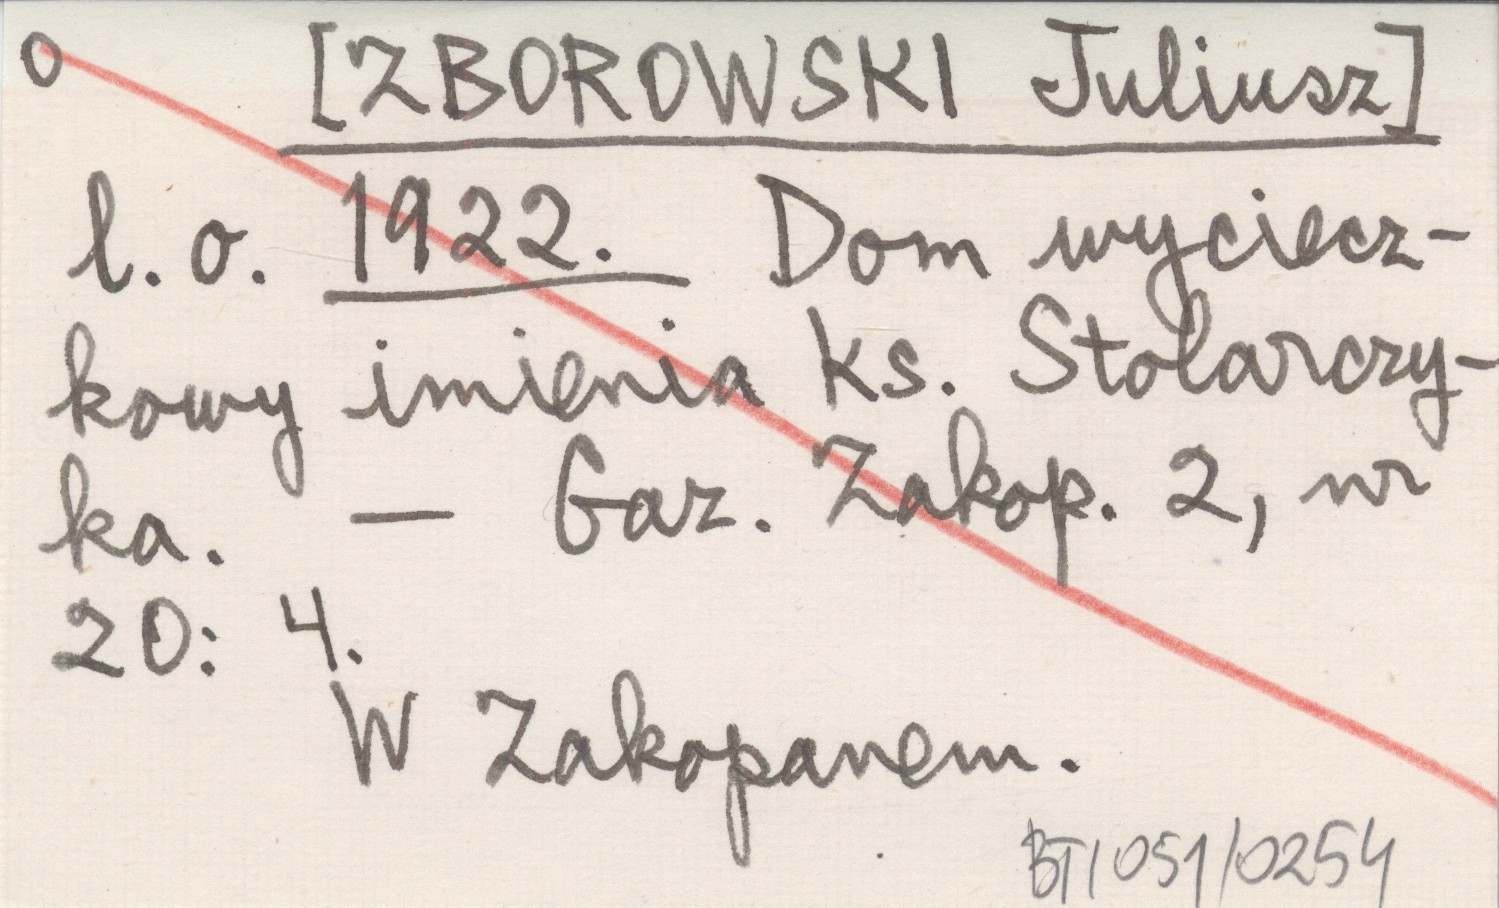 O [ZBOROWSKI Juliusz]
l. o. 1922. Dom wyciecz-
kowy imienia ks. Stolarczy-
ka. — Gaz. Zakop. 2, nr
20: 4.
W Zakopanem.
BT/051/0254